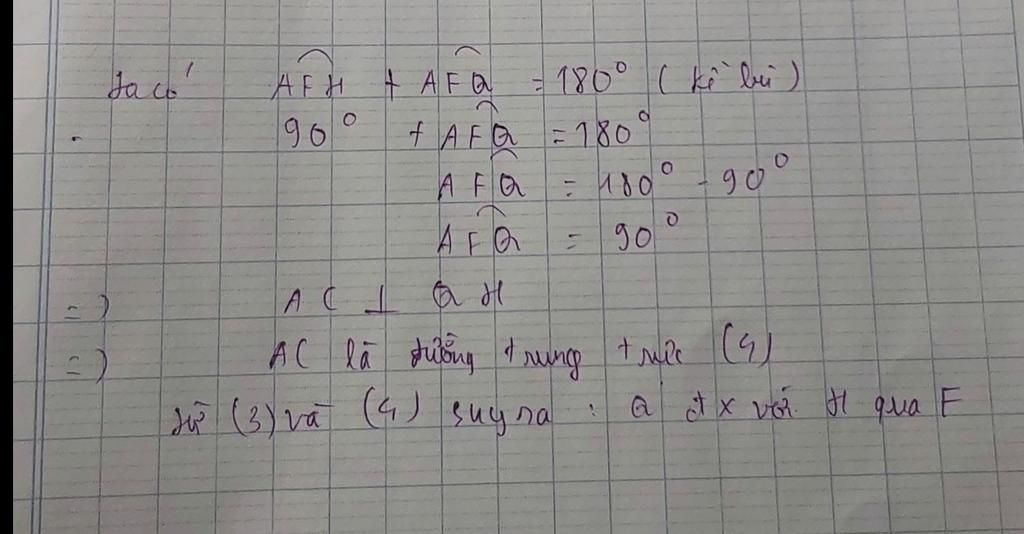 ta có AFH + AFQ = 180° (kề bù)
90° + AFQ = 180°
AFQ = 180° - 90°
AFQ = 90°
=) AC ⊥ QH
=) AC là đường trung trực (4)
từ (3) và (4) suy ra : Q đx với H qua F